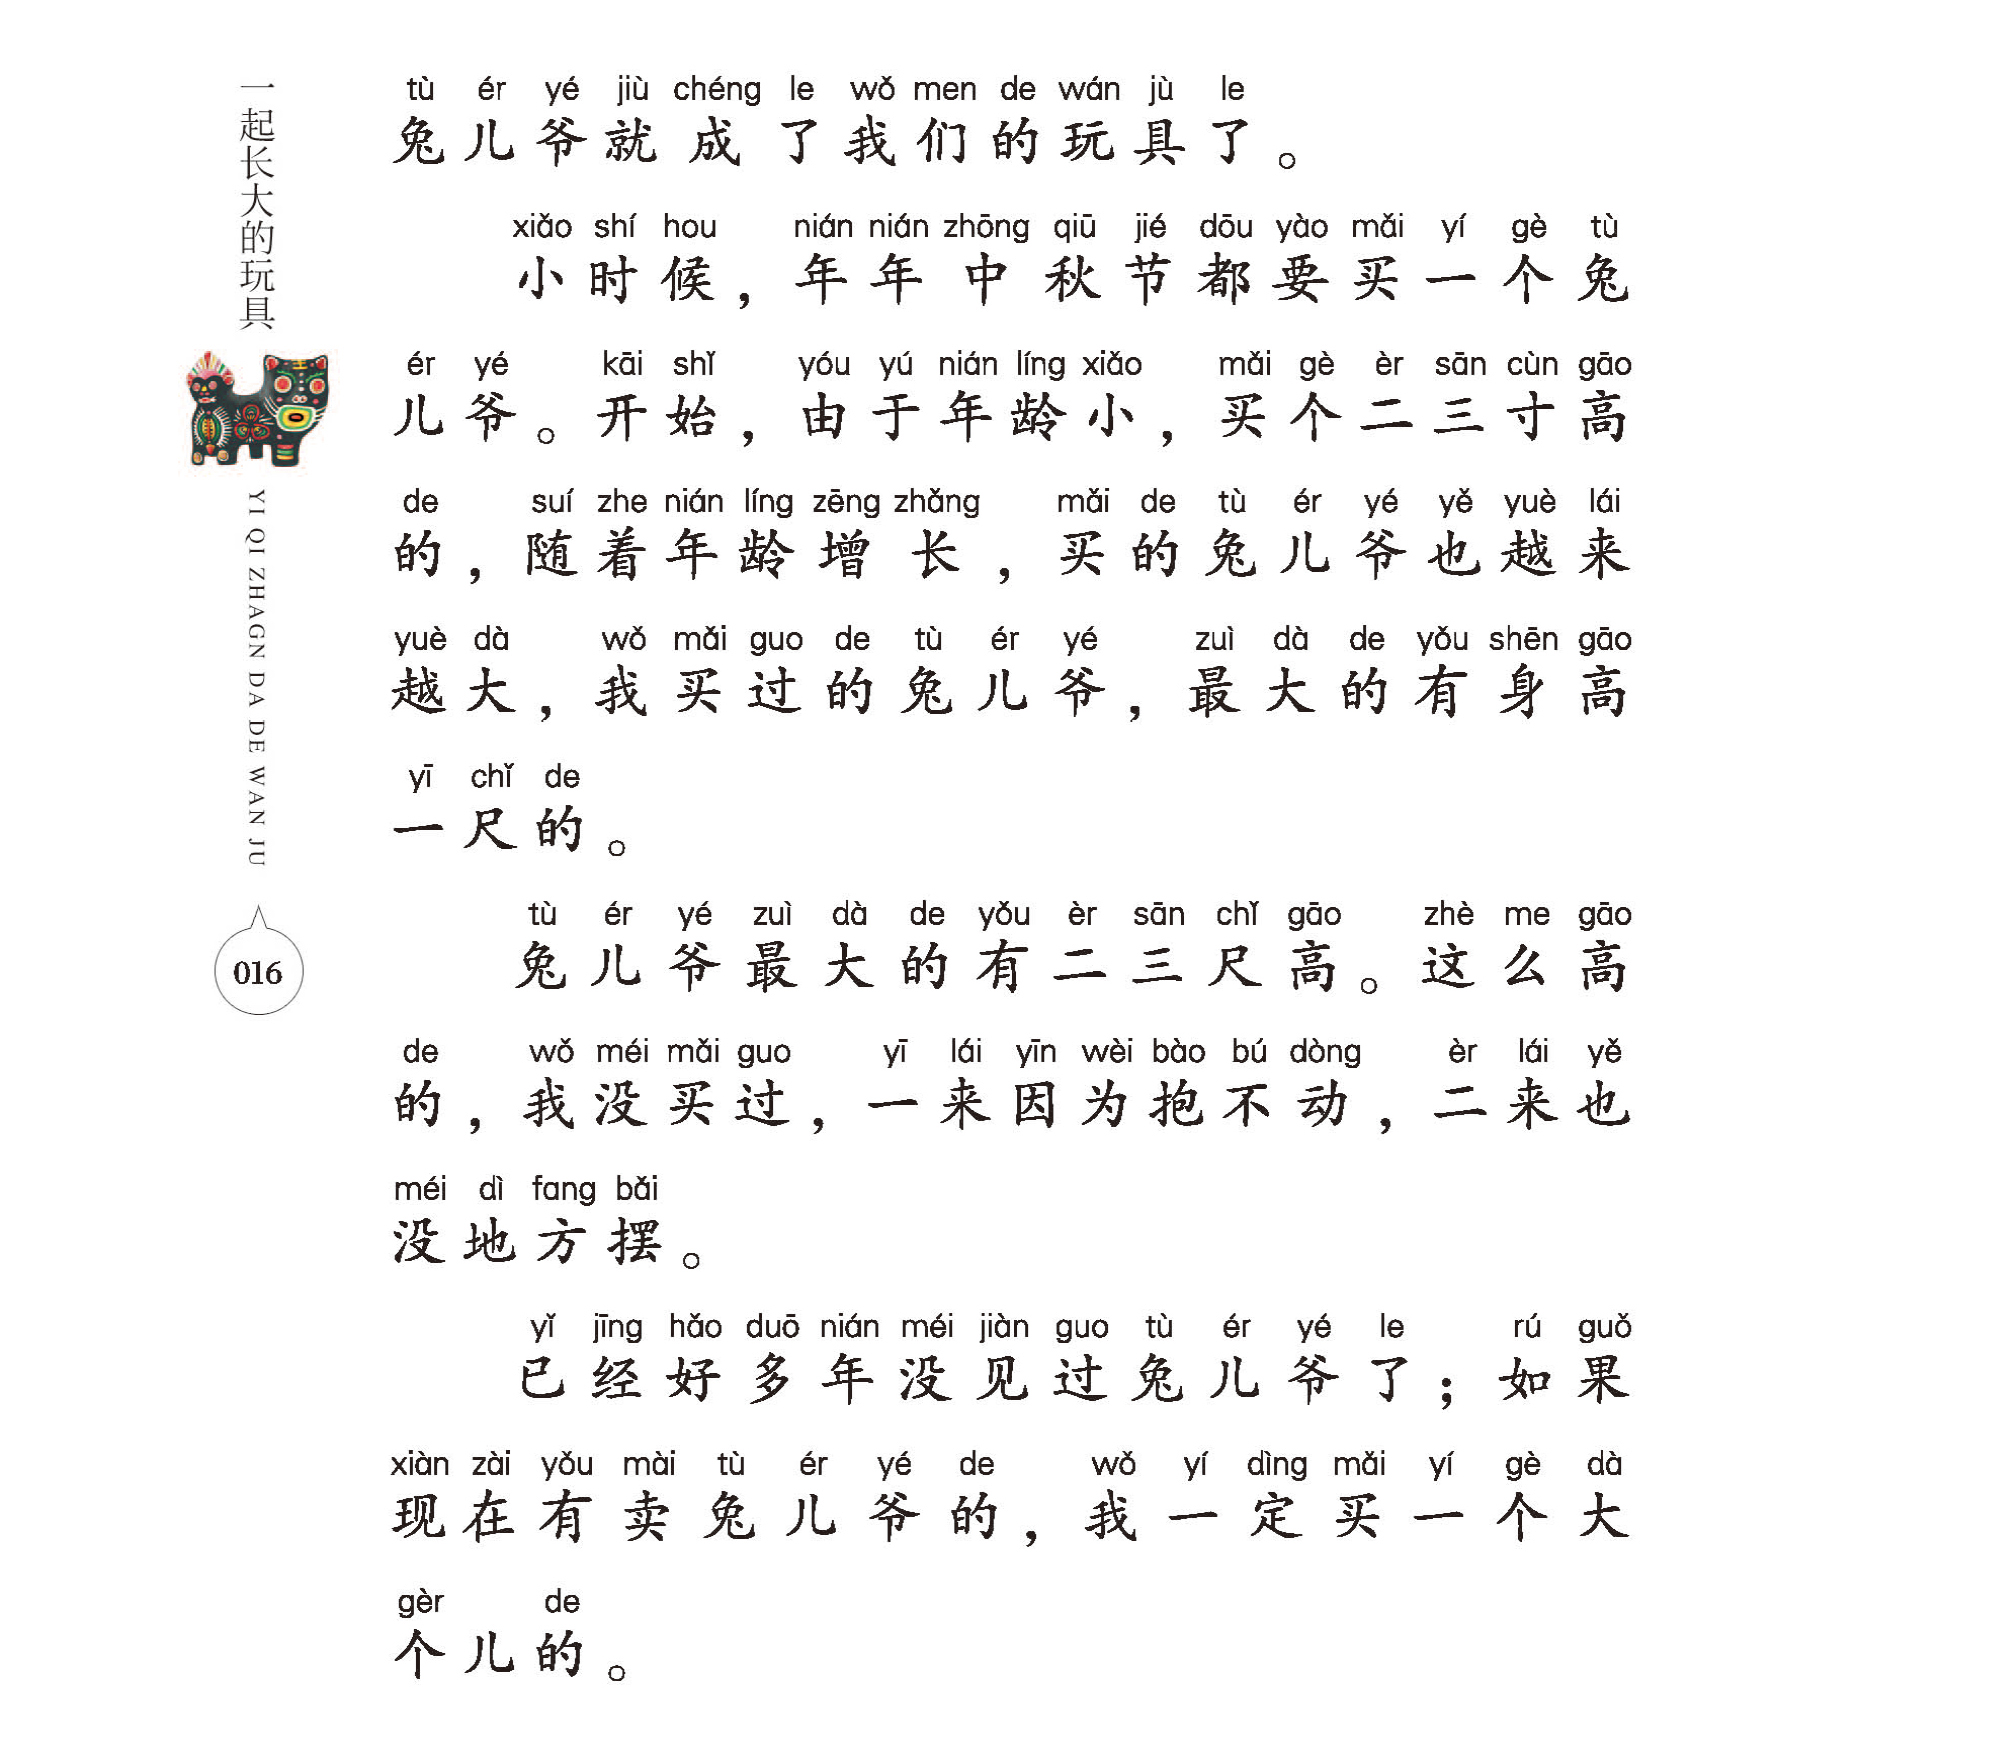 一起长大的玩具
YI QI ZHAGN DA DE WAN JU
016
tù ér yé jiù chéng le wǒ men de wán jù le
兔儿爷就成了我们的玩具了。
xiǎo shí hou nián nián zhōng qiū jié dōu yào mǎi yí gè tù
小时候，年年中秋节都要买一个兔
ér yé kāi shǐ yóu yú nián líng xiǎo mǎi gè èr sān cùn gāo
儿爷。开始，由于年龄小，买个二三寸高
de suí zhe nián líng zēng zhǎng mǎi de tù ér yé yě yuè lái
的，随着年龄增长，买的兔儿爷也越来
yuè dà wǒ mǎi guo de tù ér yé zuì dà de yǒu shēn gāo
越大，我买过的兔儿爷，最大的有身高
yī chǐ de
一尺的。
tù ér yé zuì dà de yǒu èr sān chǐ gāo zhè me gāo
兔儿爷最大的有二三尺高。这么高
de wǒ méi mǎi guo yī lái yīn wèi bào bú dòng èr lái yě
的，我没买过，一来因为抱不动，二来也
méi dì fang bǎi
没地方摆。
yǐ jīng hǎo duō nián méi jiàn guo tù ér yé le rú guǒ
已经好多年没见过兔儿爷了；如果
xiàn zài yǒu mài tù ér yé de wǒ yí dìng mǎi yí gè dà
现在有卖兔儿爷的，我一定买一个大
gèr de
个儿的。